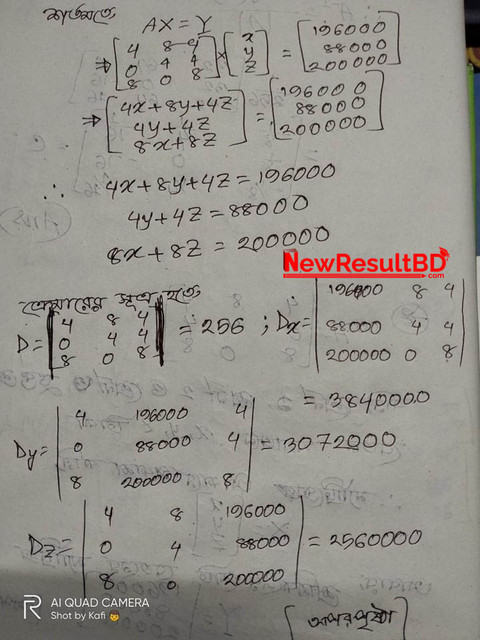 শর্তমতে
AX = Y
⇒ [4 8 4; 0 4 4; 8 0 8] × [x; y; z] = [196000; 88000; 200000]
⇒ [4x+8y+4z; 4y+4z; 8x+8z] = [196000; 88000; 200000]
∴ 4x+8y+4z = 196000
4y+4z = 88000
8x+8z = 200000
NewResultBD
.com
ক্রেমারের সূত্র হতে
D = |4 8 4; 0 4 4; 8 0 8| = 256 ; Dx = |196000 8 4; 88000 4 4; 200000 0 8|
= 3840000
Dy = |4 196000 4; 0 88000 4; 8 200000 8| = 3072000
Dz = |4 8 196000; 0 4 88000; 8 0 200000| = 2560000
[অপরপৃষ্ঠা]
AI QUAD CAMERA
Shot by Kafi